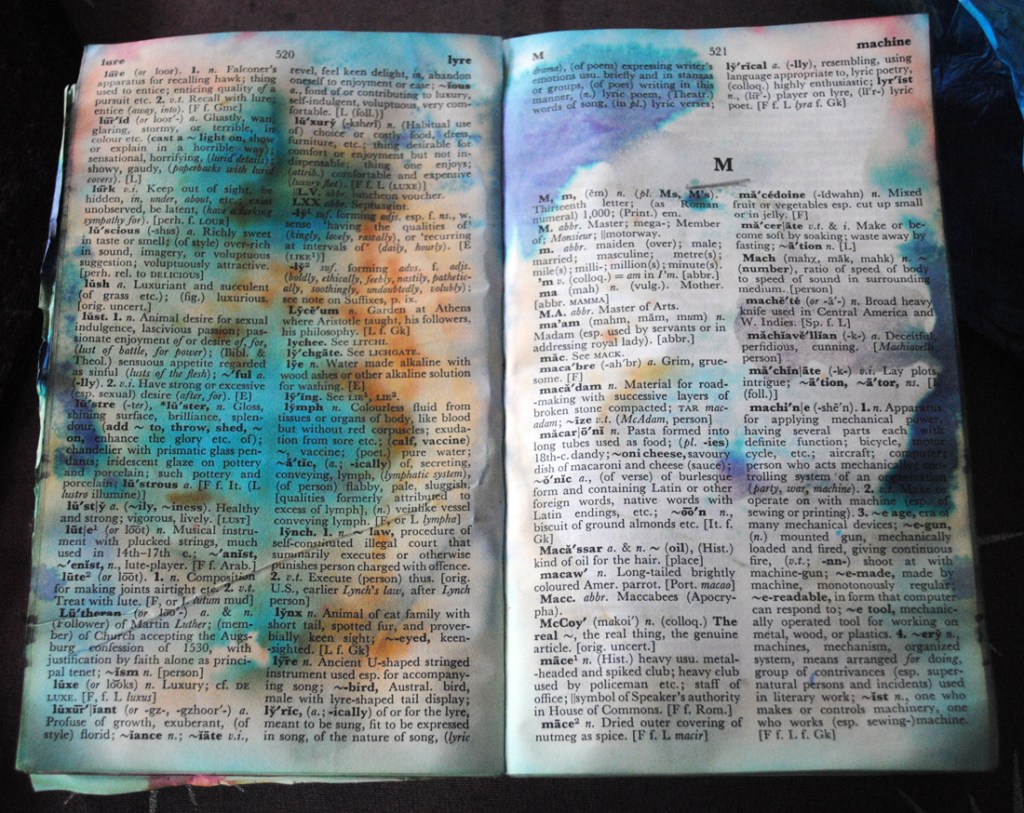 lure
520
lyre
lūre (or loor). 1. n. Falconer's
apparatus for recalling hawk; thing
used to entice; enticing quality of a
pursuit etc. 2. v.t. Recall with lure;
entice (away, into). [F f. Gmc]
lūr'id (or loor'-) a. Ghastly, wan,
glaring, stormy, or terrible, in
colour etc. (cast a ~ light on, show
or explain in a horrible way);
sensational, horrifying, (lurid details);
showy, gaudy, (paperbacks with lurid
covers). [L]
lurk v.i. Keep out of sight, be
hidden, in, under, about, etc.; exist
unobserved, be latent, (have a lurking
sympathy for). [perh. f. LOUR]
lŭ'scious (-shus) a. Richly sweet
in taste or smell; (of style) over-rich
in sound, imagery, or voluptuous
suggestion; voluptuously attractive.
[perh. rel. to DELICIOUS]
lŭsh a. Luxuriant and succulent
(of grass etc.); (fig.) luxurious.
[orig. uncert.]
lŭst. 1. n. Animal desire for sexual
indulgence, lascivious passion; pas-
sionate enjoyment of or desire of, for,
(lust of battle, for power); (Bibl. &
Theol.) sensuous appetite regarded
as sinful (lusts of the flesh); ~'ful a.
(-lly). 2. v.i. Have strong or excessive
(esp. sexual) desire (after, for). [E]
lŭ'stre (-ter), *lŭ'ster, n. Gloss,
shining surface, brilliance, splen-
dour, (add ~ to, throw, shed, ~
on, enhance the glory etc. of);
chandelier with prismatic glass pen-
dants; iridescent glaze on pottery
and porcelain; such pottery and
porcelain; lŭ'strous a. [F f. It. (L
lustro illumine)]
lŭ'stȳ a. (~ily, ~iness). Healthy
and strong; vigorous, lively. [LUST]
lūt|e¹ (or lōōt) n. Musical instru-
ment with plucked strings, much
used in 14th-17th c.; ~'anist,
~'enist, n., lute-player. [F f. Arab.]
lūte² (or lōōt). 1. n. Composition
for making joints airtight etc. 2. v.t.
Treat with lute. [F, or L lutum mud]
Lū'theran (or lōō'-) a. & n.
(Follower) of Martin Luther; (mem-
ber) of Church accepting the Augs-
burg confession of 1530, with
justification by faith alone as princi-
pal tenet; ~ism n. [person]
lūxe (or lōōks) n. Luxury; cf. DE
LUXE. [F, f. L luxus]
lŭxūr'|iant (or -gz-, -gzhoor'-) a.
Profuse of growth, exuberant, (of
style) florid; ~iance n.; ~iāte v.i.,
revel, feel keen delight, in, abandon
oneself to enjoyment or ease; ~ious
a., fond of or contributing to luxury,
self-indulgent, voluptuous, very com-
fortable. [L (foll.)]
lŭ'xurȳ (-ksherĭ) n. (Habitual use
of) choice or costly food, dress,
furniture, etc.; thing desirable for
comfort or enjoyment but not in-
dispensable; thing one enjoys;
(attrib.) comfortable and expensive
(luxury flat). [F f. L (LUXE)]
L.V. abbr. luncheon voucher.
LXX abbr. Septuagint.
-lȳ¹ suf. forming adjs. esp. f. ns., w.
sense 'having the qualities of'
(kingly, lovely, rascally), or 'recurring
at intervals of' (daily, hourly). [E
(LIKE¹)]
-lȳ² suf. forming advs. f. adjs.
(boldly, ethically, feebly, nastily, pathetic-
ally, soothingly, undoubtedly, volubly);
see note on Suffixes, p. ix.
Lȳcē'um n. Garden at Athens
where Aristotle taught, his followers,
his philosophy. [L f. Gk]
lychee. See LITCHI.
lȳ'chgāte. See LICHGATE.
lȳe n. Water made alkaline with
wood ashes or other alkaline solution
for washing. [E]
lȳ'ing. See LIE¹, LIE².
lȳmph n. Colourless fluid from
tissues or organs of body, like blood
but without red corpuscles; exuda-
tion from sore etc.; (calf, vaccine)
~, vaccine; (poet.) pure water;
~ă'tic, (a.; -ically) of, secreting,
conveying, lymph, (lymphatic system),
(of person) flabby, pale, sluggish,
[qualities formerly attributed to
excess of lymph], (n.) veinlike vessel
conveying lymph. [F, or L lympha]
lȳnch. 1. n. ~ law, procedure of
self-constituted illegal court that
summarily executes or otherwise
punishes person charged with offence.
2. v.t. Execute (person) thus. [orig.
U.S., earlier Lynch's law, after Lynch
person]
lȳnx n. Animal of cat family with
short tail, spotted fur, and prover-
bially keen sight; ~-eyed, keen-
sighted. [L f. Gk]
lȳre n. Ancient U-shaped stringed
instrument used esp. for accompany-
ing song; ~-bird, Austral. bird,
male with lyre-shaped tail display;
lȳ'ric, (a.; -ically) of or for the lyre,
meant to be sung, fit to be expressed
in song, of the nature of song, (lyric
M
521
machine
drama), (of poem) expressing writer's
emotions usu. briefly and in stanzas
or groups, (of poet) writing in this
manner, (n.) lyric poem, (Theatr.)
words of song, (in pl.) lyric verses;
lȳ'rical a. (-lly), resembling, using
language appropriate to, lyric poetry,
(colloq.) highly enthusiastic; lyr'ist
n., (lĭr'-) player on lyre, (lĭr'-) lyric
poet. [F f. L lyra f. Gk]
M
M, m, (ĕm) n. (pl. Ms, M's).
Thirteenth letter; (as Roman
numeral) 1,000; (Print.) em.
M. abbr. Master; mega-; Member
of; Monsieur; ||motorway.
m. abbr. maiden (over); male;
married; masculine; metre(s);
mile(s); milli-; million(s); minute(s).
'm v. (colloq.) = am in I'm. [abbr.]
ma (mah) n. (vulg.). Mother.
[abbr. MAMMA]
M.A. abbr. Master of Arts.
ma'am (mahm, măm, mum) n.
Madam (esp. used by servants or in
addressing royal lady). [abbr.]
măc. See MACK.
maca'bre (-ah'br) a. Grim, grue-
some. [F]
macă'dam n. Material for road-
-making with successive layers of
broken stone compacted; TAR mac-
adam; ~ize v.t. (McAdam, person]
măcar|ō'nĭ n. Pasta formed into
long tubes used as food; (pl. -ies)
18th-c. dandy; ~oni cheese, savoury
dish of macaroni and cheese (sauce);
~ŏ'nic a., (of verse) of burlesque
form and containing Latin or other
foreign words, native words with
Latin endings, etc.; ~ōō'n n.,
biscuit of ground almonds etc. [It. f.
Gk]
Macă'ssar a. & n. ~ (oil), (Hist.)
kind of oil for the hair. [place]
macaw' n. Long-tailed brightly
coloured Amer. parrot. [Port. macao]
Macc. abbr. Maccabees (Apocry-
pha).
McCoy' (makoi') n. (colloq.) The
real ~, the real thing, the genuine
article. [orig. uncert.]
māce¹ n. (Hist.) heavy usu. metal-
-headed and spiked club; heavy club
used by policeman etc.; staff of
office; ||symbol of Speaker's authority
in House of Commons. [F f. Rom.]
māce² n. Dried outer covering of
nutmeg as spice. [F f. L macir]
mă'cédoine (-ĭdwahn) n. Mixed
fruit or vegetables esp. cut up small
or in jelly. [F]
mă'cer|āte v.t. & i. Make or be-
come soft by soaking; waste away by
fasting; ~ā'tion n. [L]
Mach (mahχ, măk, mahk) n. ~
(number), ratio of speed of body
to speed of sound in surrounding
medium. [person]
machĕ'té (or -ā'-) n. Broad heavy
knife used in Central America and
W. Indies. [Sp. f. L]
măchiavĕ'llian (-k-) a. Deceitful,
perfidious, cunning. [Machiavelli,
person]
mă'chĭn|āte (-k-) v.i. Lay plots,
intrigue; ~ā'tion, ~ā'tor, ns. [L
(foll.)]
machi'n|e (-shē'n). 1. n. Apparatus
for applying mechanical power,
having several parts each with
definite function; bicycle, motor
cycle, etc.; aircraft; computer;
person who acts mechanically; con-
trolling system of an organization
(party, war, machine). 2. v.t. Make or
operate on with machine (esp. of
sewing or printing). 3. ~e age, era of
many mechanical devices; ~e-gun,
(n.) mounted gun, mechanically
loaded and fired, giving continuous
fire, (v.t.; -nn-) shoot at with
machine-gun; ~e-made, made by
machine, monotonously regular;
~e-readable, in form that computer
can respond to; ~e tool, mechanic-
ally operated tool for working on
metal, wood, or plastics. 4. ~erȳ n.,
machines, mechanism, organized
system, means arranged for doing,
group of contrivances (esp. super-
natural persons and incidents) used
in literary work; ~ist n., one who
makes or controls machinery, one
who works (esp. sewing-)machine.
[F f. L f. Gk]